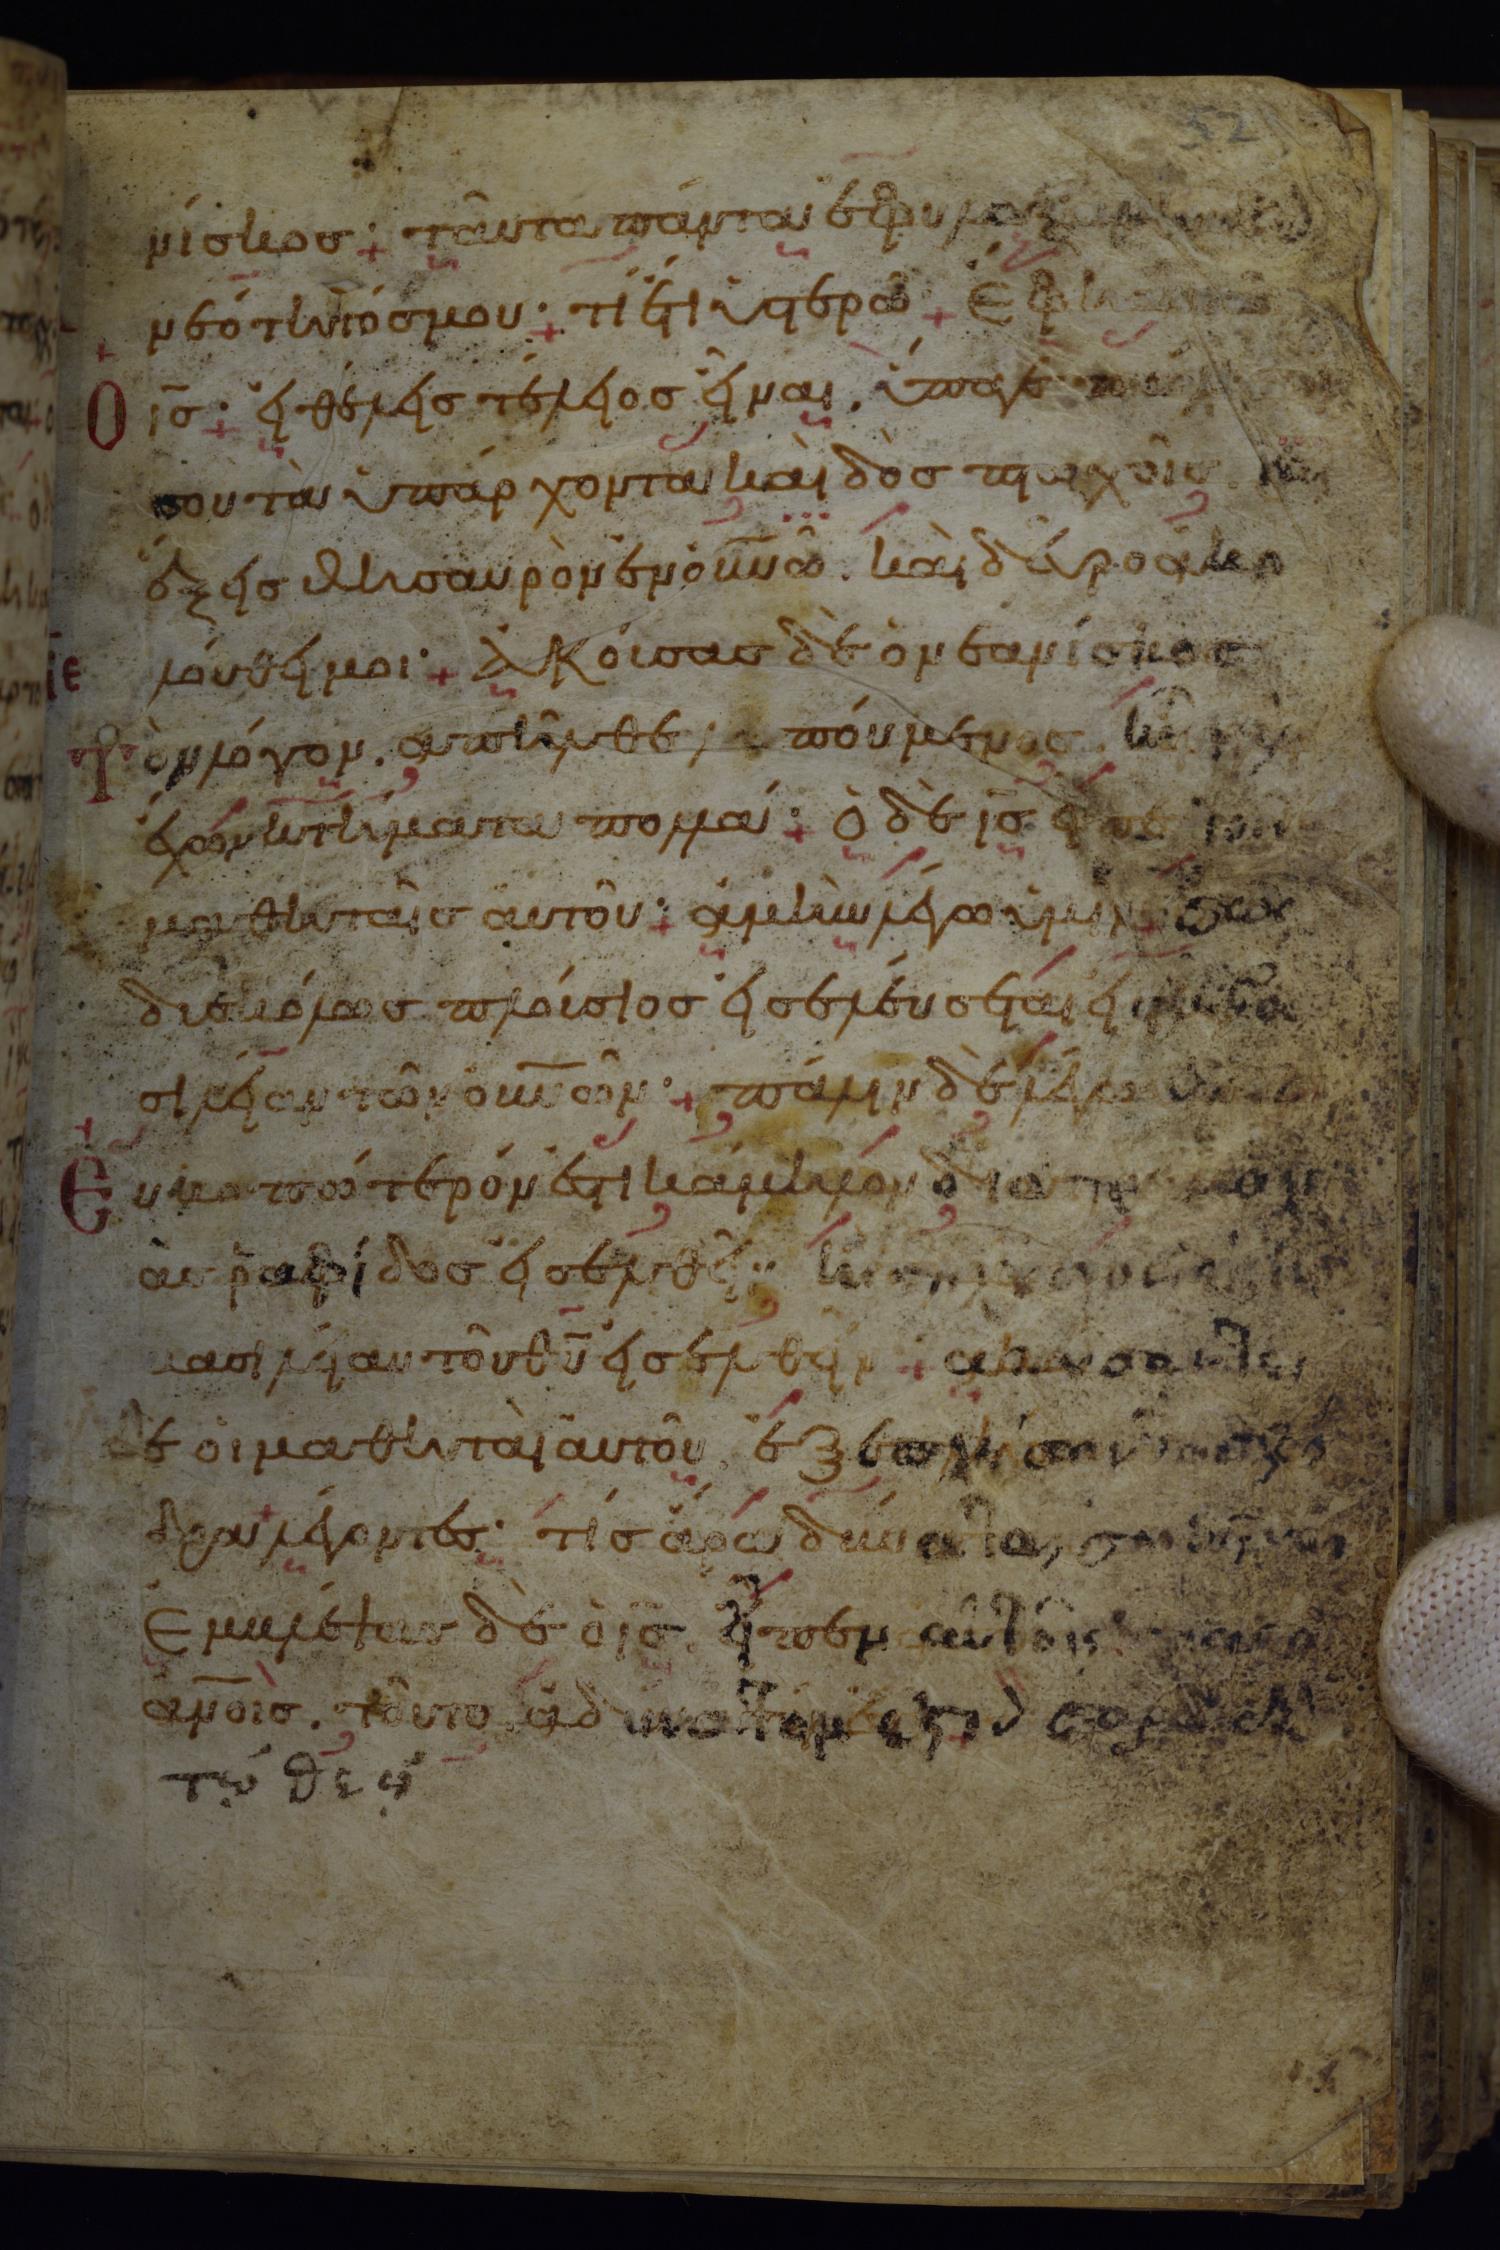 νίσκοσ· ταῦτα πάντα ἐφυλαξάμην
νεότητόσ μου· τί ἔτι ὑστερῶ
Ο ἰσ· εἰ θέλεισ τέλειοσ εἶναι, ὕπαγε
σου τὰ ὑπάρχοντα καὶ δὸσ πτωχοῖσ
ἕξεισ θησαυρὸν ἐν οὐνῶ. καὶ δεῦρο ἀκο
λούθει μοι· Ἀκούσασ δὲ ὁ νεανίσκοσ
τὸν λόγον. ἀπῆλθε λυπούμενοσ. ἦν γὰρ
ἔχων κτήματα πολλά· ὁ δὲ ἰσ εἶπε τοῖσ
μαθηταῖσ αὐτοῦ· ἀμὴν λέγω ὑμῖν
δυσκόλωσ πλούσιοσ εἰσελεύσεται εἰσ
σιλείαν τῶν οὐνῶν· πάλιν δὲ λέγω
Ευκοπώτερόν ἐστι κάμηλον δια
ασ ραφίδοσ εἰσελθεῖν
βασιλείαν τοῦ θῦ εἰσελθεῖν ἀκούσαντεσ
δὲ οἱ μαθηταὶ αὐτοῦ, ἐξεπλήσσοντο
δρα λέγοντεσ· τίσ ἄρα δύναται σωθῆναι
Εμβλέψασ δὲ ὁ ἰσ. εἶπεν αὐτοῖσ
ἀνοισ. τοῦτο ἀδύνατόν ἐστιν
τῷ θεῷ
52
ιε